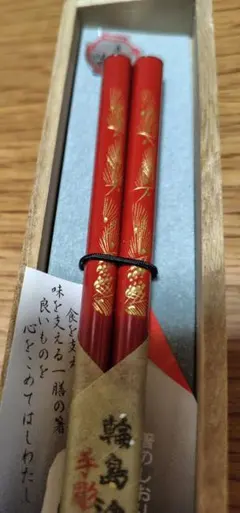 食を支え
味を支える一膳の箸
良いものを
心をこめてはしわたし
輪島塗
手彫
箸のしおり